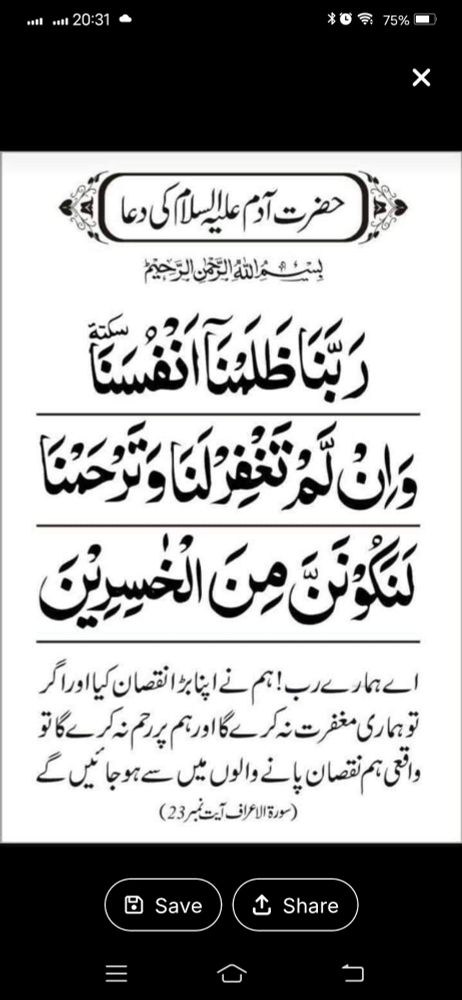 20:31
75%
حضرت آدم علیہ السلام کی دعا
بِسْمِ اللهِ الرَّحْمٰنِ الرَّحِيْمِ
رَبَّنَا ظَلَمْنَآ اَنْفُسَنَا سكتة
وَاِنْ لَّمْ تَغْفِرْ لَنَا وَتَرْحَمْنَا
لَنَكُوْنَنَّ مِنَ الْخٰسِرِيْنَ
اے ہمارے رب! ہم نے اپنا بڑا نقصان کیا اور اگر
تو ہماری مغفرت نہ کرے گا اور ہم پر رحم نہ کرے گا تو
واقعی ہم نقصان پانے والوں میں سے ہو جائیں گے
(سورۃ الاعراف آیت نمبر 23)
Save
Share